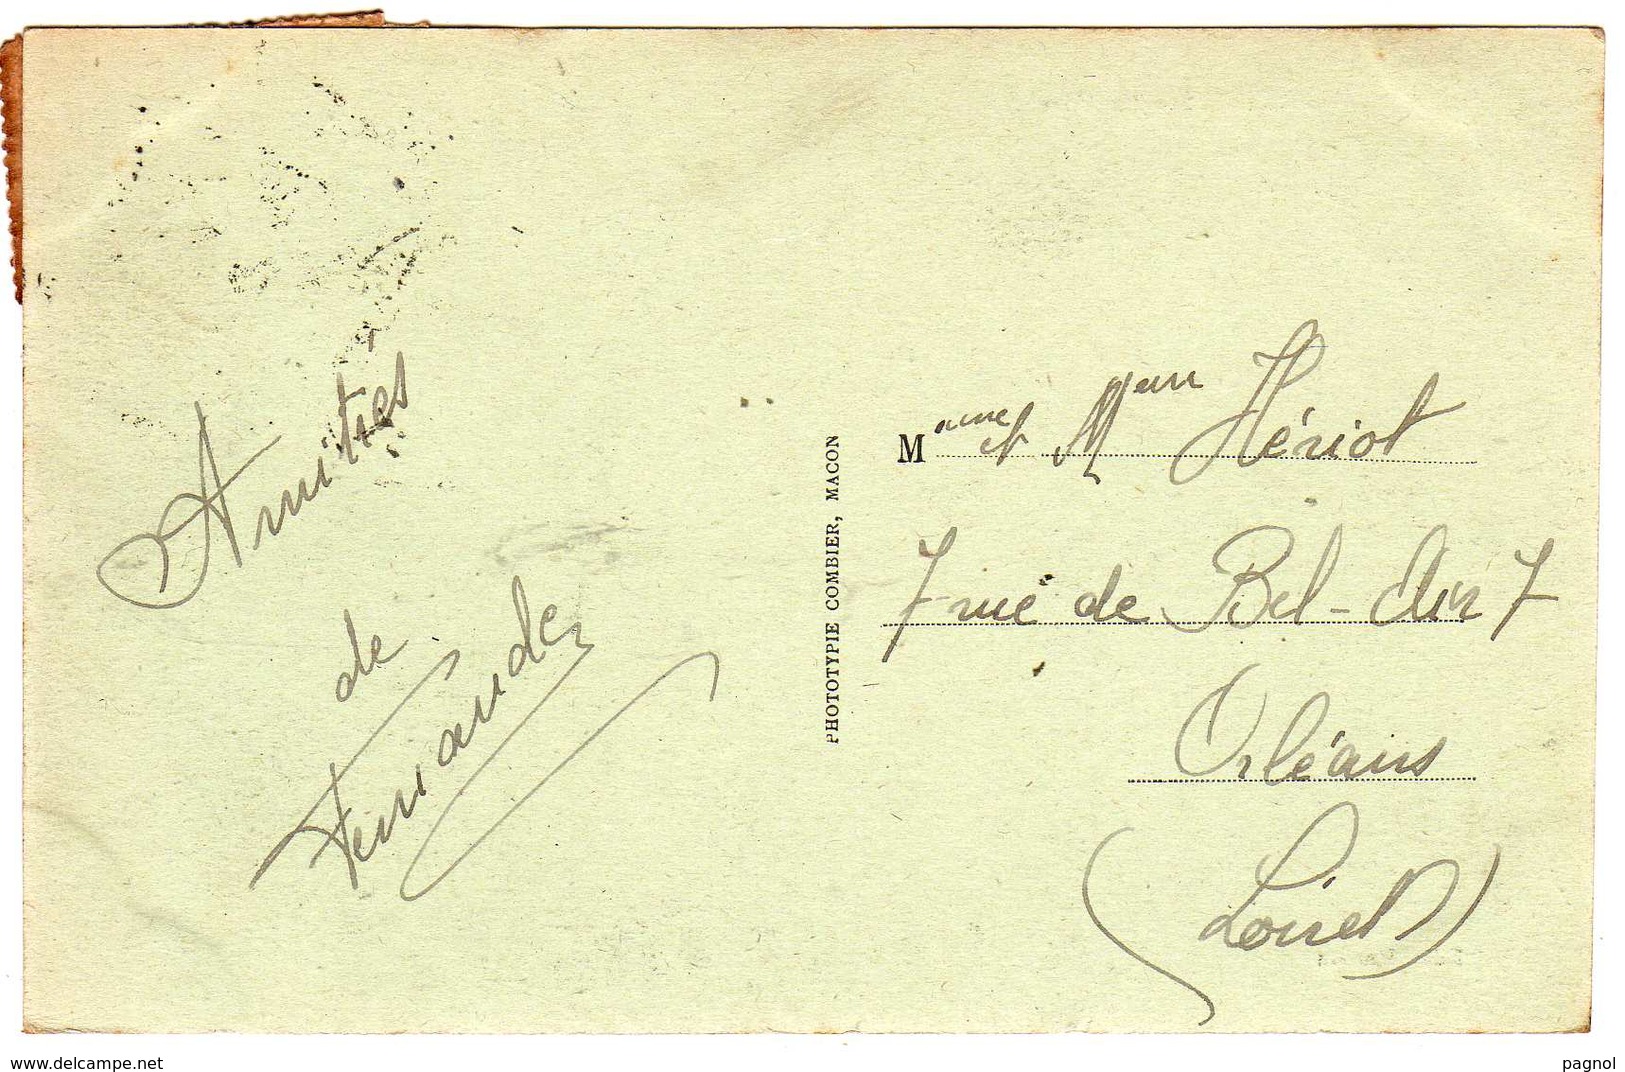 Amitiés
de
Fernande
PHOTOTYPIE COMBIER, MACON
Mame et Meur Hériot
7 rue de Bel-Air 7
Orléans
(Loiret)
www.delcampe.net
pagnol